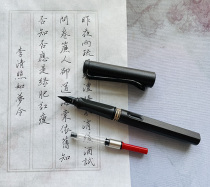 昨夜雨疏 消殘酒試
問卷簾人卻道 棠依舊知
否知否應是綠肥紅瘦
李清照如夢令